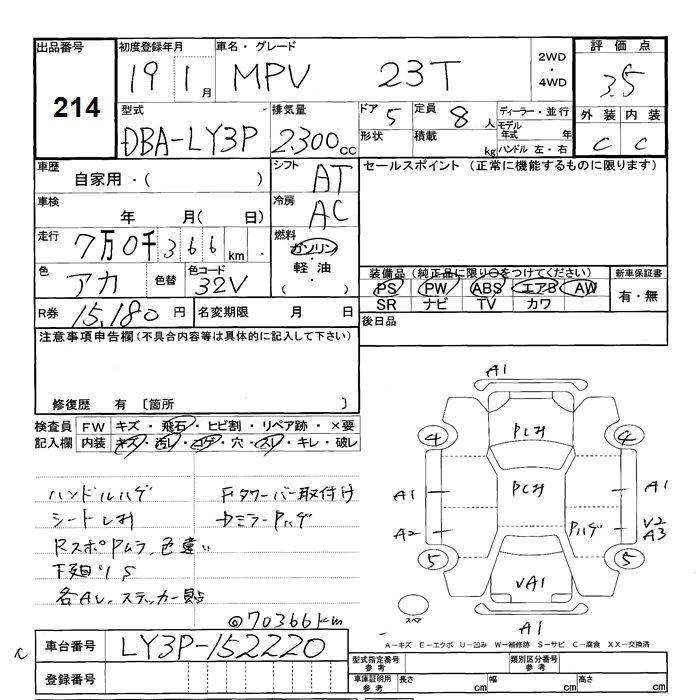 出品番号 初度登録年月 車名・グレード 2WD・4WD 評価点
214 19 1月 MPV 23T 3.5
型式 排気量 ドア 5 定員 8人 ディーラー・並行 外装 内装
DBA-LY3P 2.300cc 形状 積載 kg モデル年式 年 ハンドル 左・右 C C
車歴 シフト セールスポイント (正常に機能するものに限ります)
自家用・( ) AT
車検 冷房
年 月( 日) AC
走行 7万0千366km 燃料 ガソリン・
色 アカ 色替 色コード 32V 軽油・( )
装備品 (純正品に限り○をつけてください) 新車保証書
PS PW ABS エアB AW 有・無
SR ナビ TV カワ
R券 15,180円 名変期限 月 日 後日品
注意事項申告欄(不具合内容等は具体的に記入して下さい)
修復歴 有 〔箇所 〕
検査員 FW キズ・飛石・ヒビ割・リペア跡・×要
記入欄 内装 キズ・汚レ・コゲ・穴・スレ・キレ・破レ
ハンドルハゲ Fタワーバー取付け
シートしみ DミラーPハゲ
RスポPムラ、色違い
下廻りS
各AU、ステッカー貼
◎70366km
A1
④ Pしみ ④
A1 Pしみ A1
A2 Pハゲ V2
A3
⑤ VA1 ⑤
スペア A1
A−キズ E−エクボ U−凹み W−補修跡 S−サビ C−腐食 XX−交換済
車台番号 LY3P-152220
登録番号
型式指定番号 参考 類別区分番号 参考
車庫証明用 参考 長さ cm 幅 cm 高さ cm